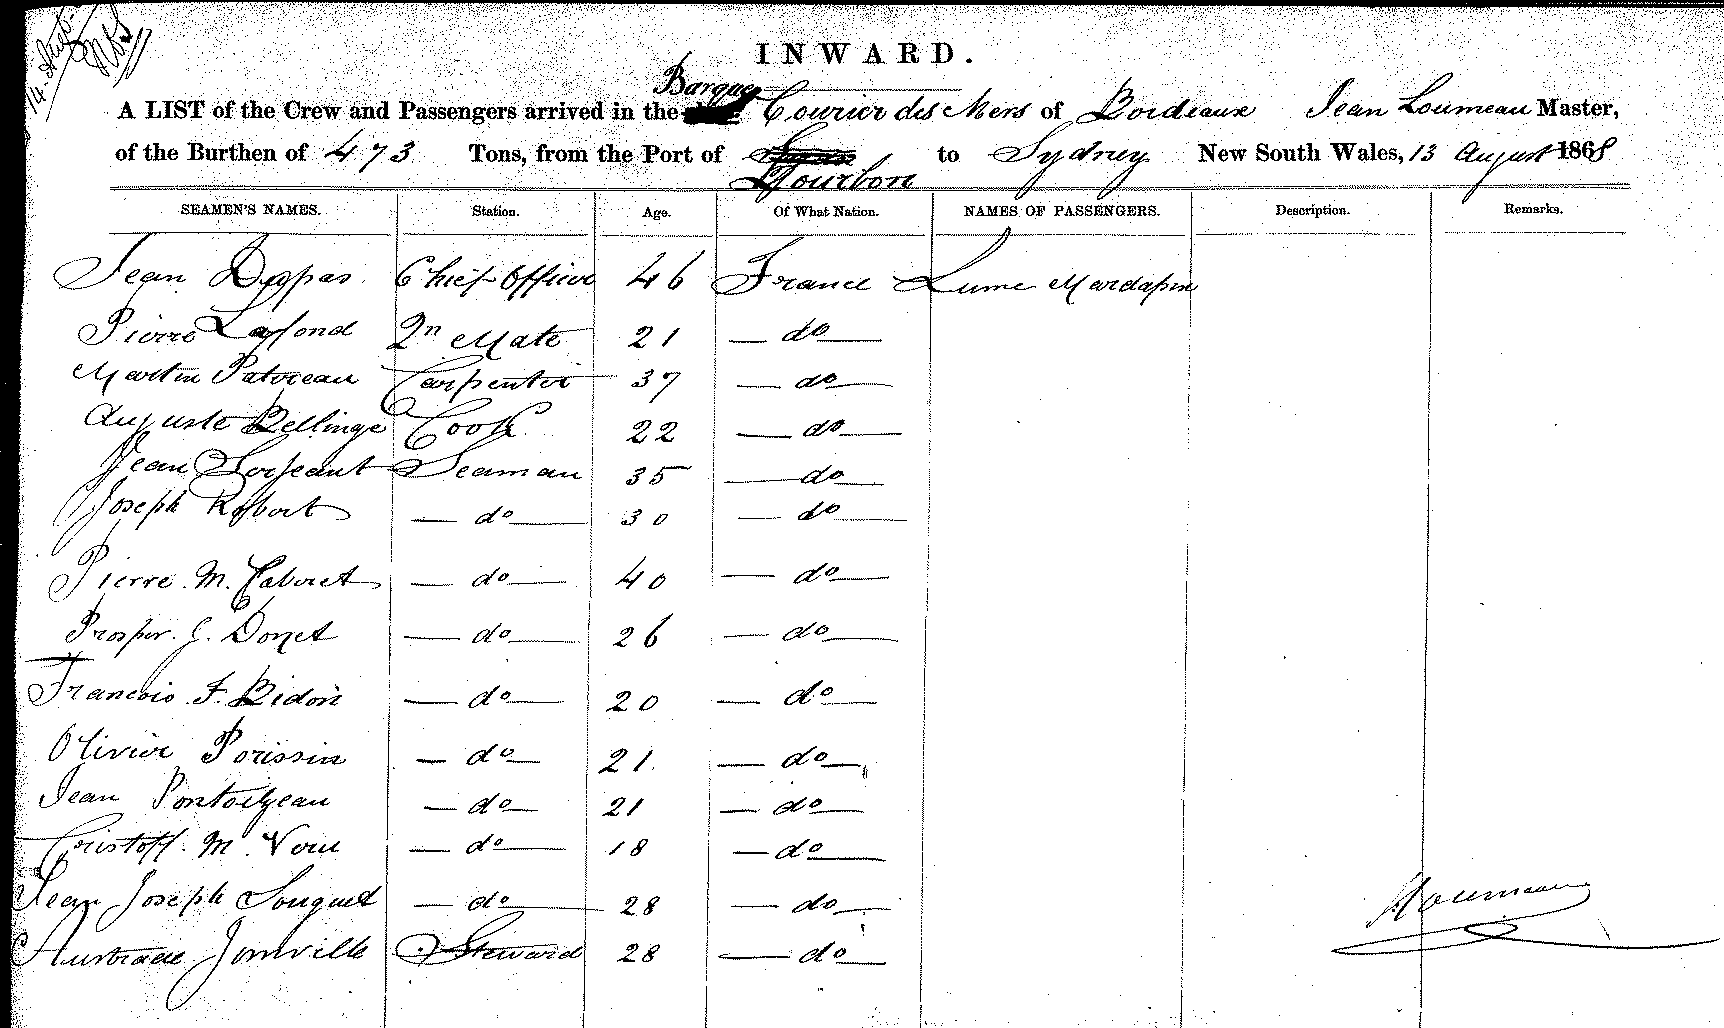 14 Augt
INWARD.
Barque
A LIST of the Crew and Passengers arrived in the Courier des Mers of Bordeaux Jean Loumeau Master,
of the Burthen of 473 Tons, from the Port of to Sydney New South Wales, 13 August 1868
Bourbon
SEAMEN'S NAMES. Station. Age. Of What Nation. NAMES OF PASSENGERS. Description. Remarks.
Jean Chief Officer 46 France
Pierre Lafond 2n Mate 21 — do —
Martin Patureau Carpenter 37 — do —
Auguste Bellinge Cook 22 — do —
Jean Serjeant Seaman 35 — do —
Joseph Robert — do — 30 — do —
Pierre M. Cabaret — do — 40 — do —
Prosper J. Donet — do — 26 — do —
Francois F. Bidon — do — 20 — do —
Olivier Porissin — do — 21 — do —
Jean — do — 21 — do —
Cristoff M. — do — 18 — do —
Jean Joseph Souquet — do — 28 — do —
Joinville Steward 28 — do —
Loumeau